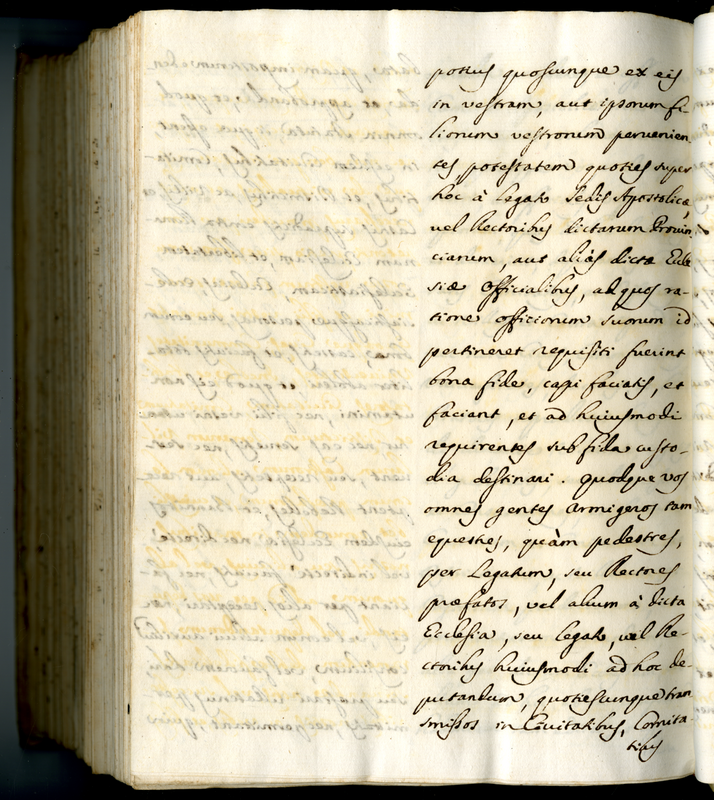 potius quoscunque ex eis
in vestram, aut ipsorum fi-
liorum vestrorum pervenien-
tes, potestatem quoties super
hoc à Legato Sedis Apostolicæ,
vel Rectoribus dictarum Provin-
ciarum, aut aliàs dictæ Eccle-
siæ Officialibus, ad quos ra-
tione officiorum suorum id
pertineret requisiti fuerint
bona fide, capi faciatis, et
faciant, et ad huiusmodi
requirentes sub fida custo-
dia destinari. quodque vos
omnes gentes armigeros tam
equestres, quàm pedestres,
per Legatum, seu Rectores
præfatos, vel alium à dicta
Ecclesia, seu Legato, vel Re-
ctoribus huiusmodi ad hoc de-
putandum, quotiescunque tran
smissos in Civitatibus, Comita-
tibus